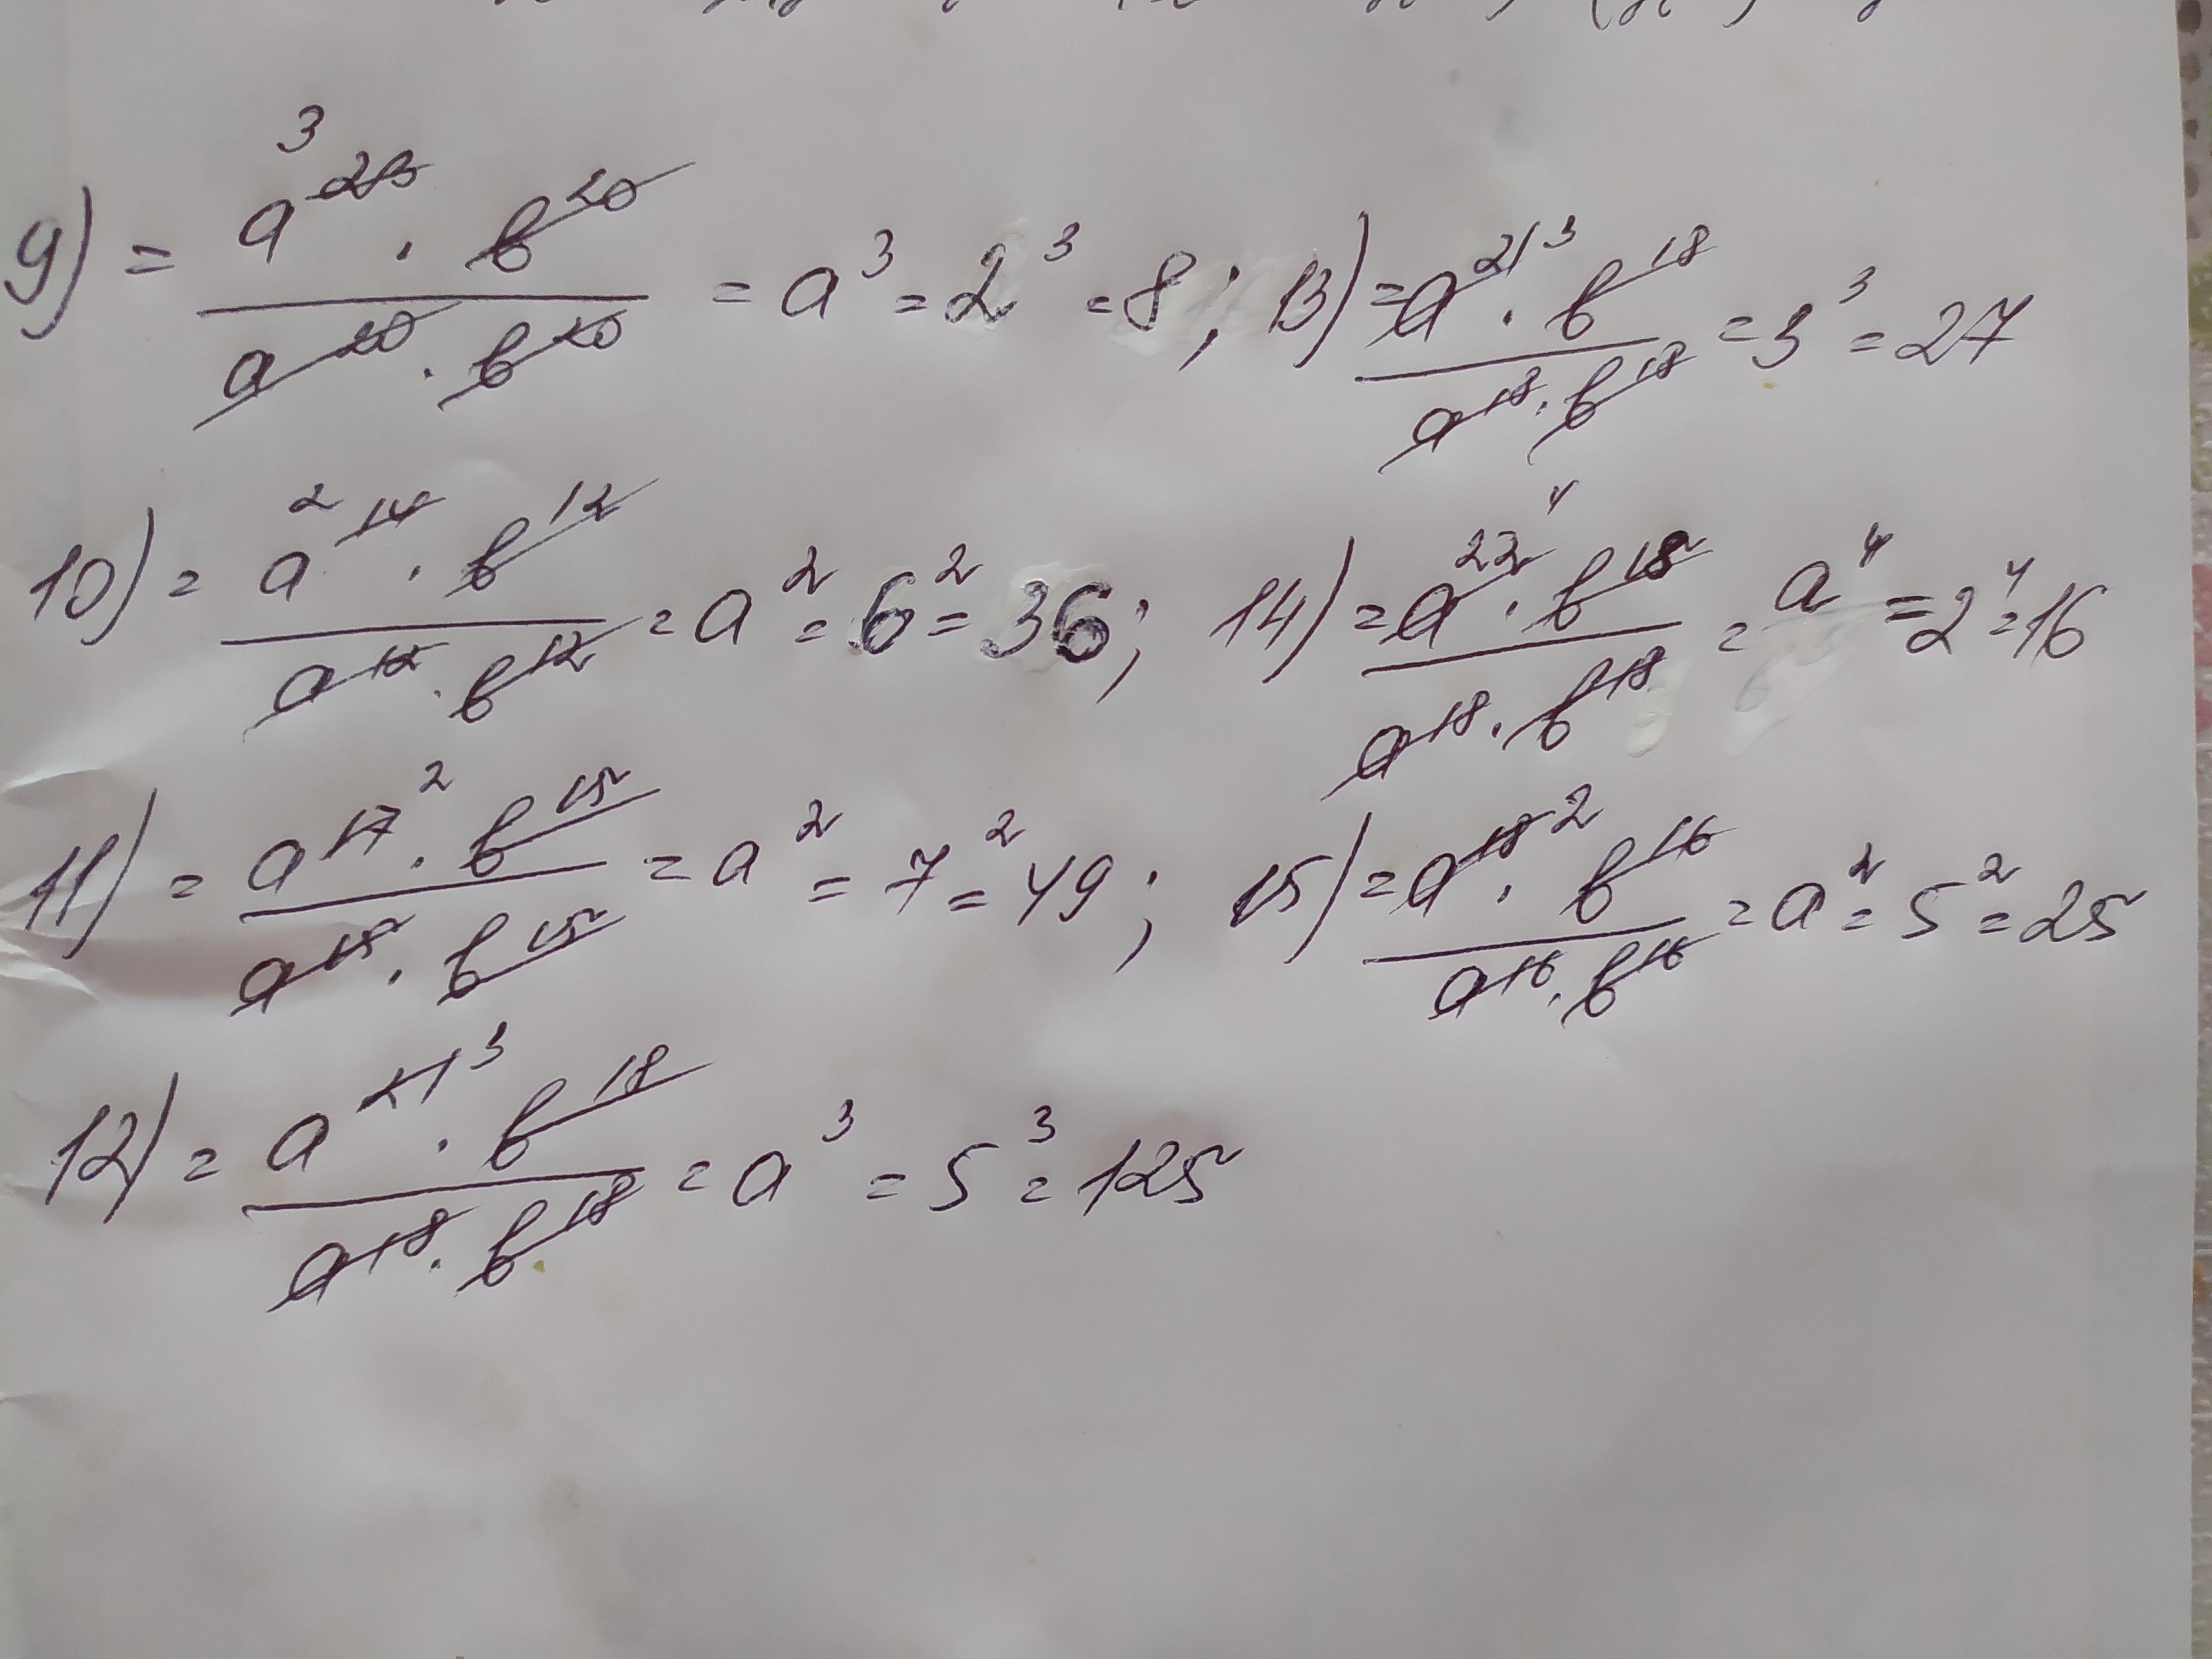 9) = a^23 3 · b^20 / a^20 · b^20 = a^3 = 2^3 = 8; 13) = a^21 3 · b^18 / a^18 · b^18 = 3^3 = 27
10) = a^14 2 · b^12 / a^12 · b^12 = a^2 = 6^2 = 36; 14) = a^22 4 · b^18 / a^18 · b^18 = a^4 = 2^4 = 16
11) = a^17 2 · b^15 / a^15 · b^15 = a^2 = 7^2 = 49; 15) = a^18 2 · b^16 / a^16 · b^16 = a^2 = 5^2 = 25
12) = a^21 3 · b^18 / a^18 · b^18 = a^3 = 5^3 = 125